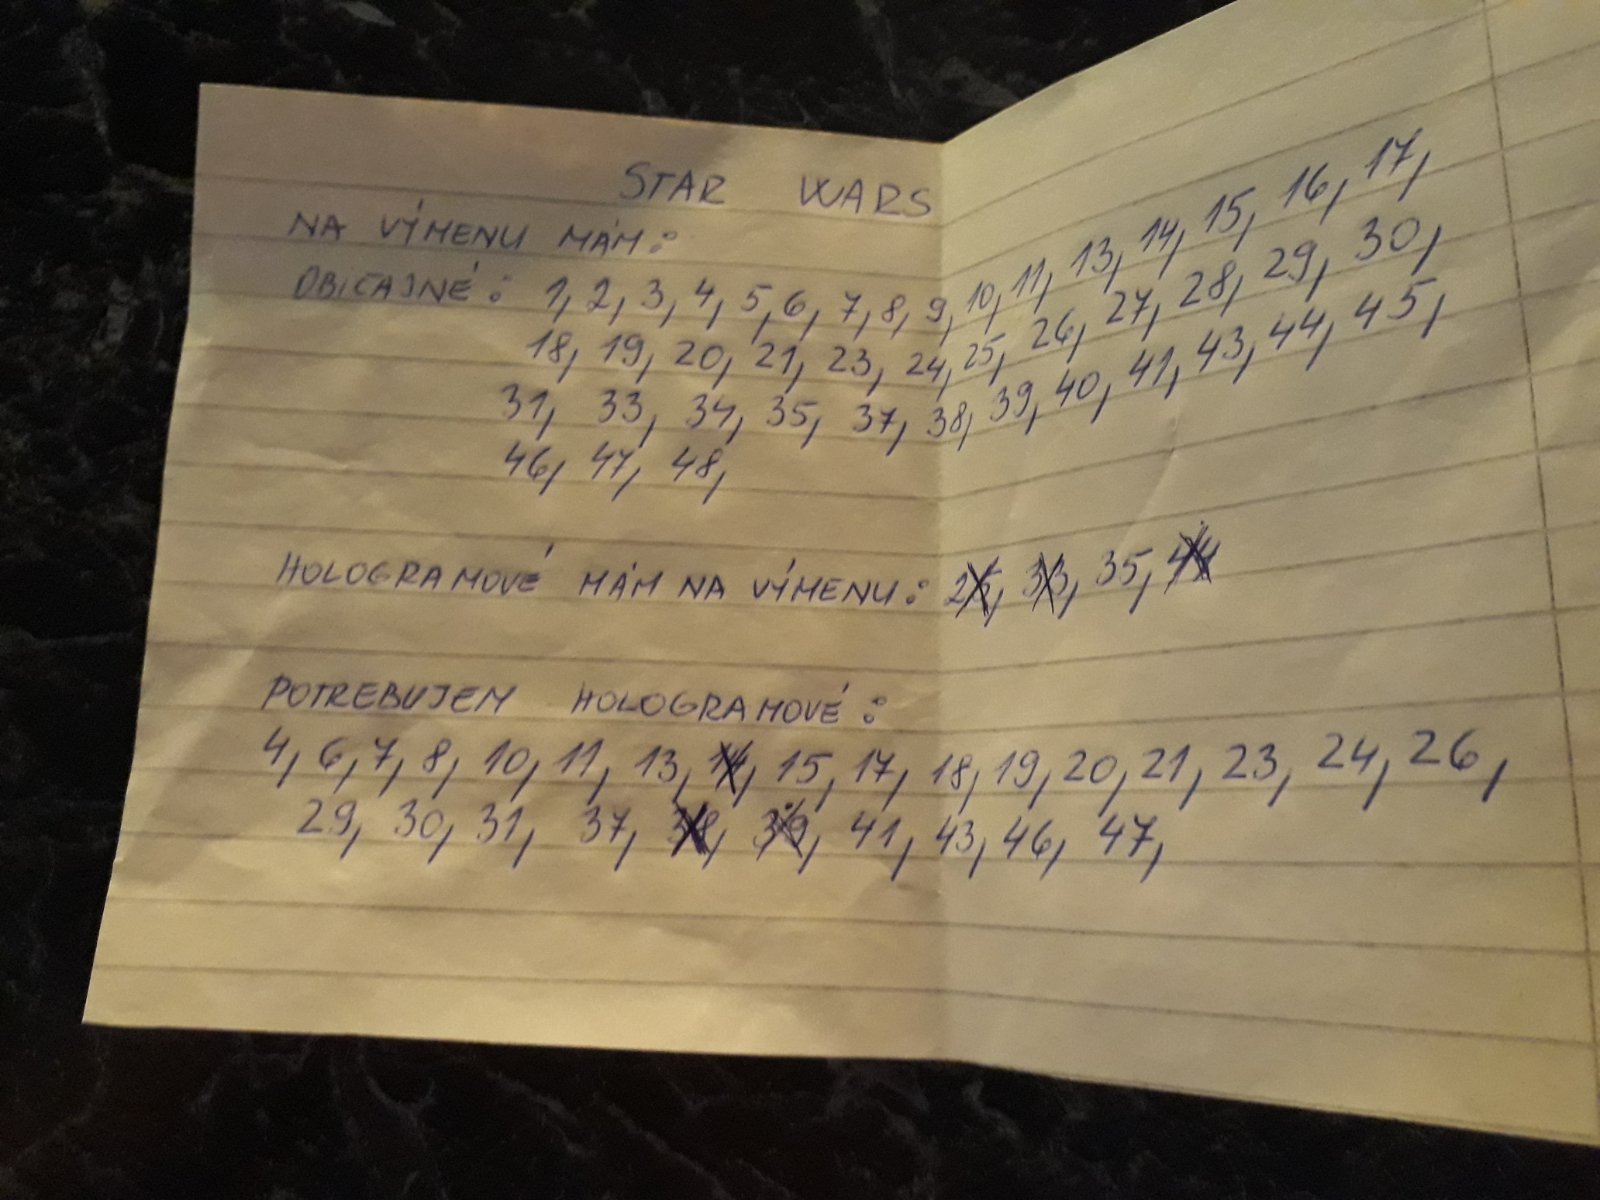 STAR WARS
NA VÝMENU MÁM:
OBICAJNÉ: 1, 2, 3, 4, 5, 6, 7, 8, 9, 10, 11, 13, 14, 15, 16, 17,
18, 19, 20, 21, 23, 24, 25, 26, 27, 28, 29, 30,
31, 33, 34, 35, 37, 38, 39, 40, 41, 43, 44, 45,
46, 47, 48,
HOLOGRAMOVÉ MÁM NA VÝMENU: 25, 33, 35, 44
POTREBUJEM HOLOGRAMOVÉ:
4, 6, 7, 8, 10, 11, 13, 14, 15, 17, 18, 19, 20, 21, 23, 24, 26,
29, 30, 31, 37, 38, 39, 41, 43, 46, 47,